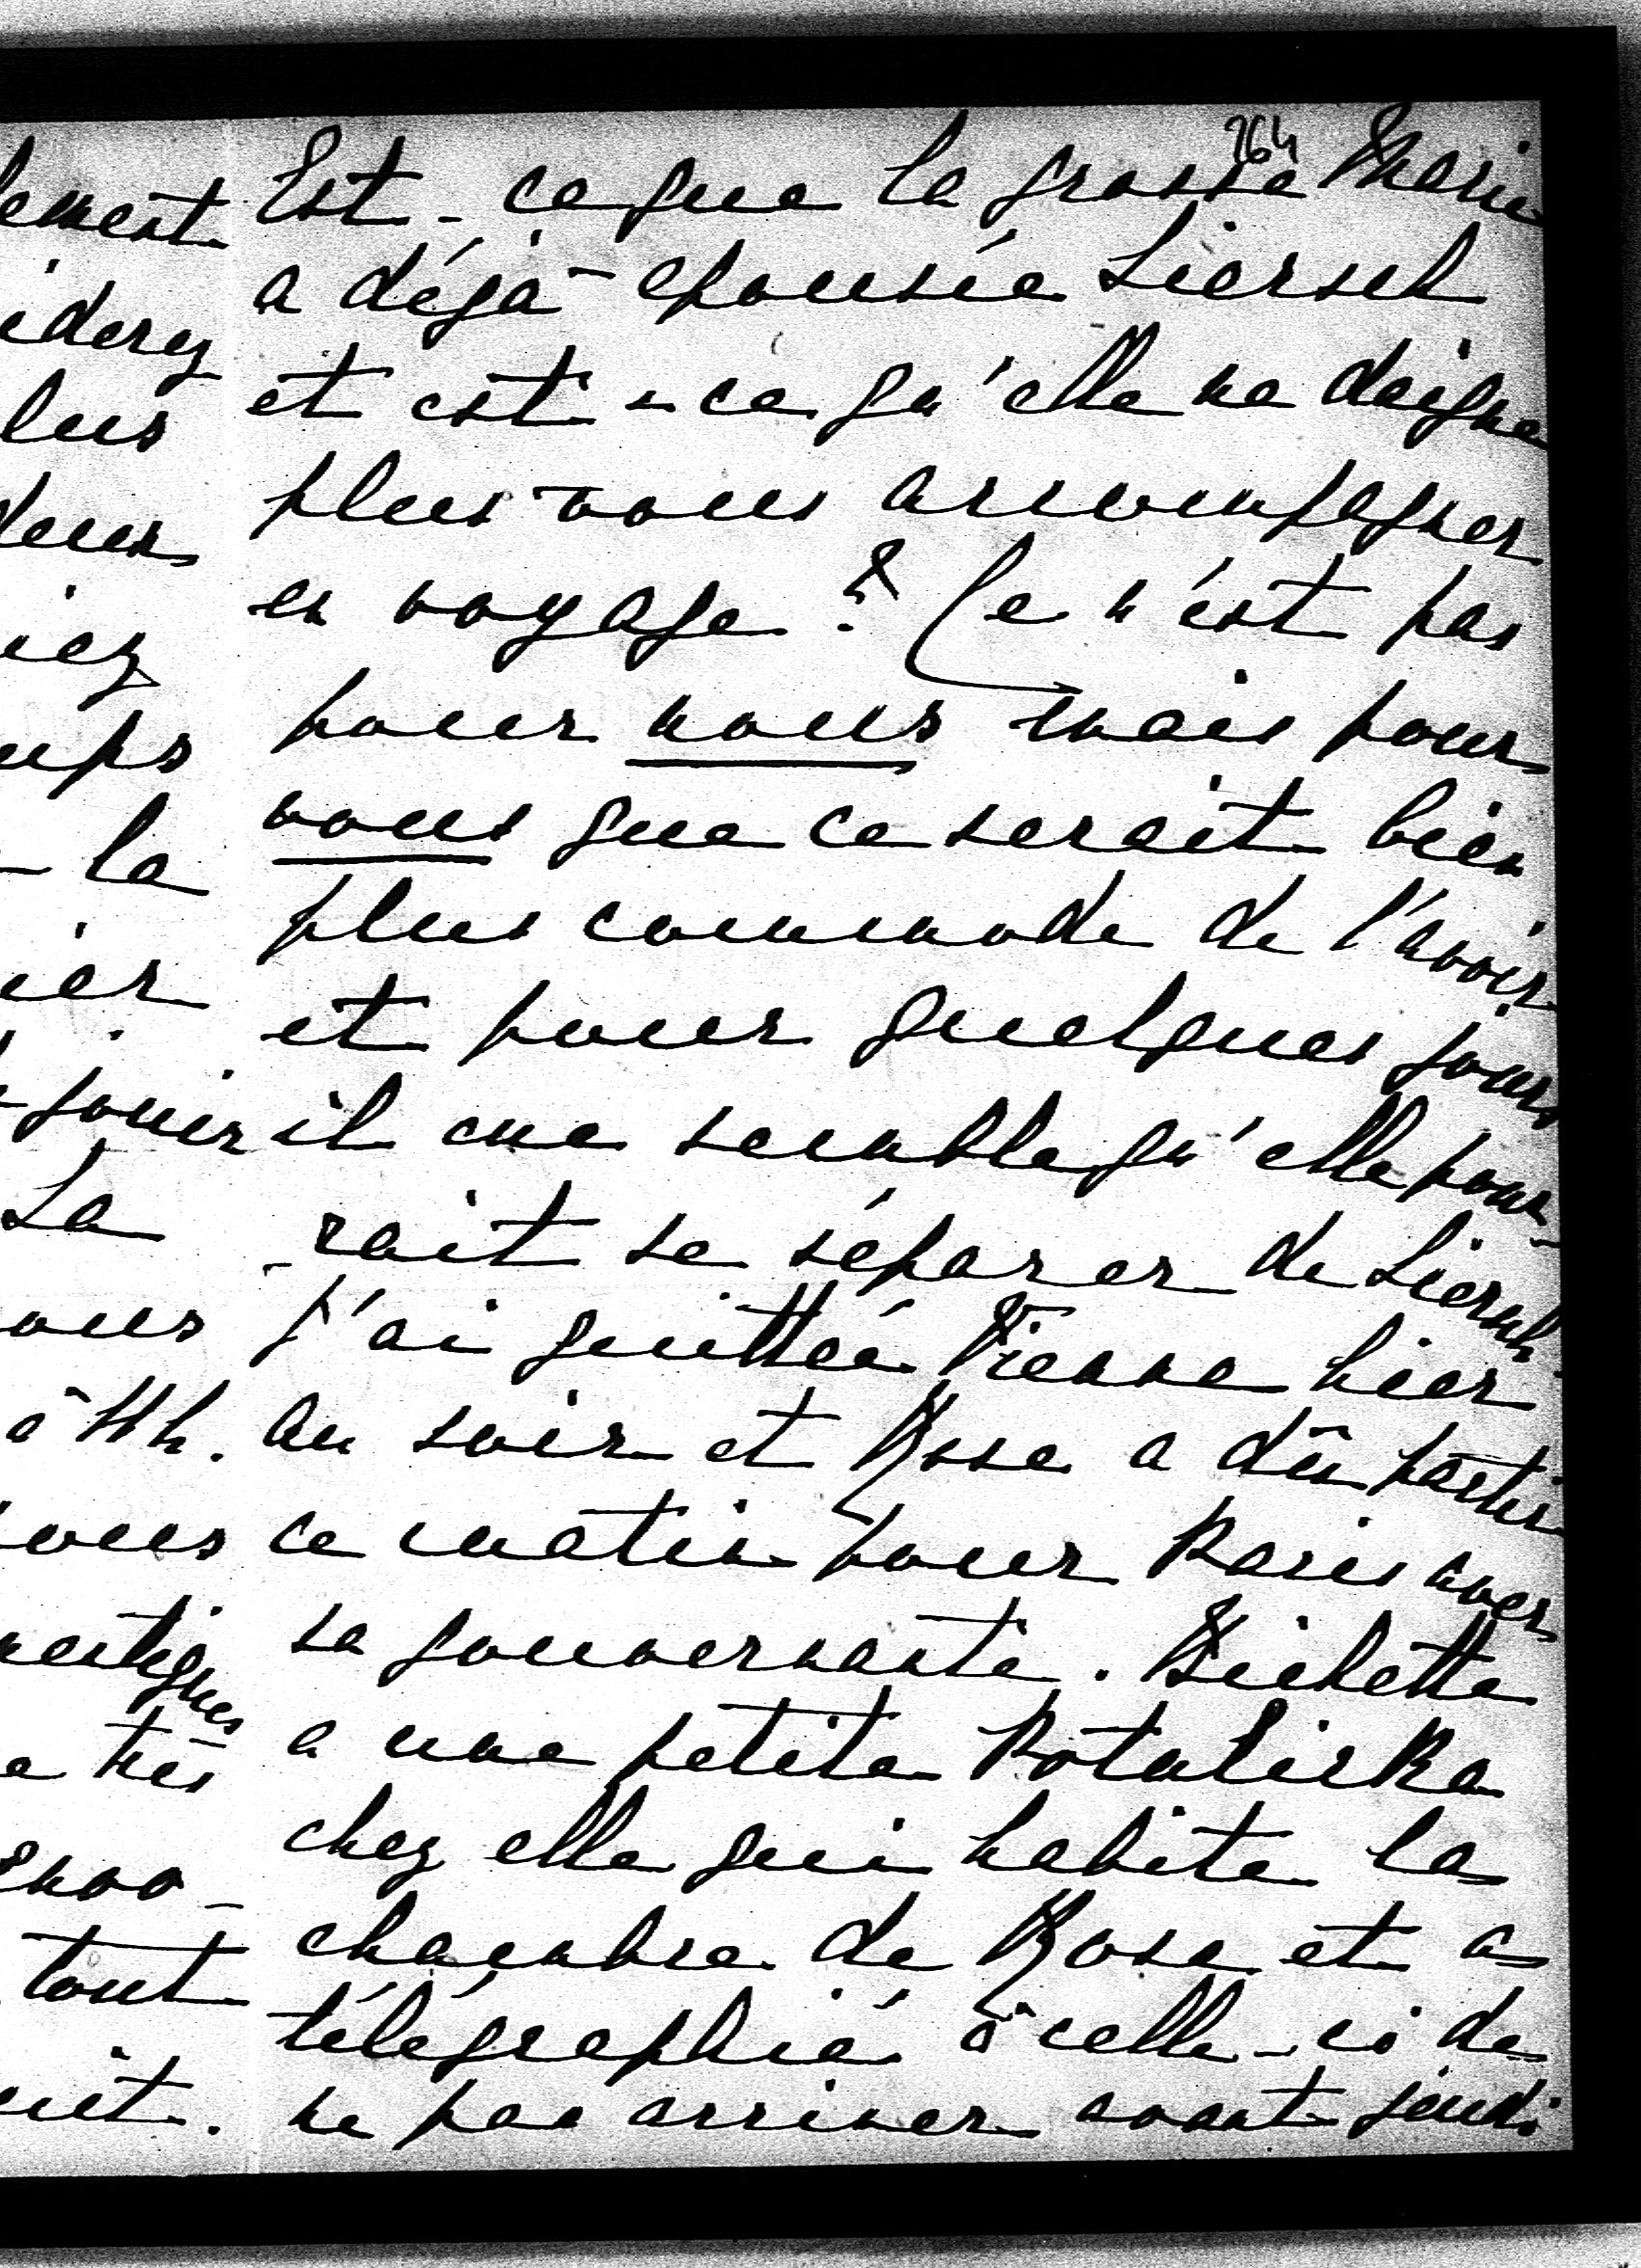 264
Est-ce que la grosse Marie
a déjà épousée Liersch
et est-ce qu'elle ne daigne
plus vous accompagner
en voyage? Ce n'est pas
pour nous mais pour
vous que ce serait bien
plus commode de l'avoir
et pour quelques jours
il me semble qu'elle pour-
-rait se séparer de Liersch
J'ai quittée Vienne hier
au soir et Rose a dû partir
ce matin pour Paris avec
sa gouvernante. Bichette
a une petite Potuliska
chez elle qui habite la
chambre de Rose et a
télégraphié à celle-ci de
ne pas arriver avant jeudi
lement
iderez
lus
deux
iez
mps
- la
ier
jouir
La
ous
à 11 h.
vous
mestiques
a très
tout
uit.